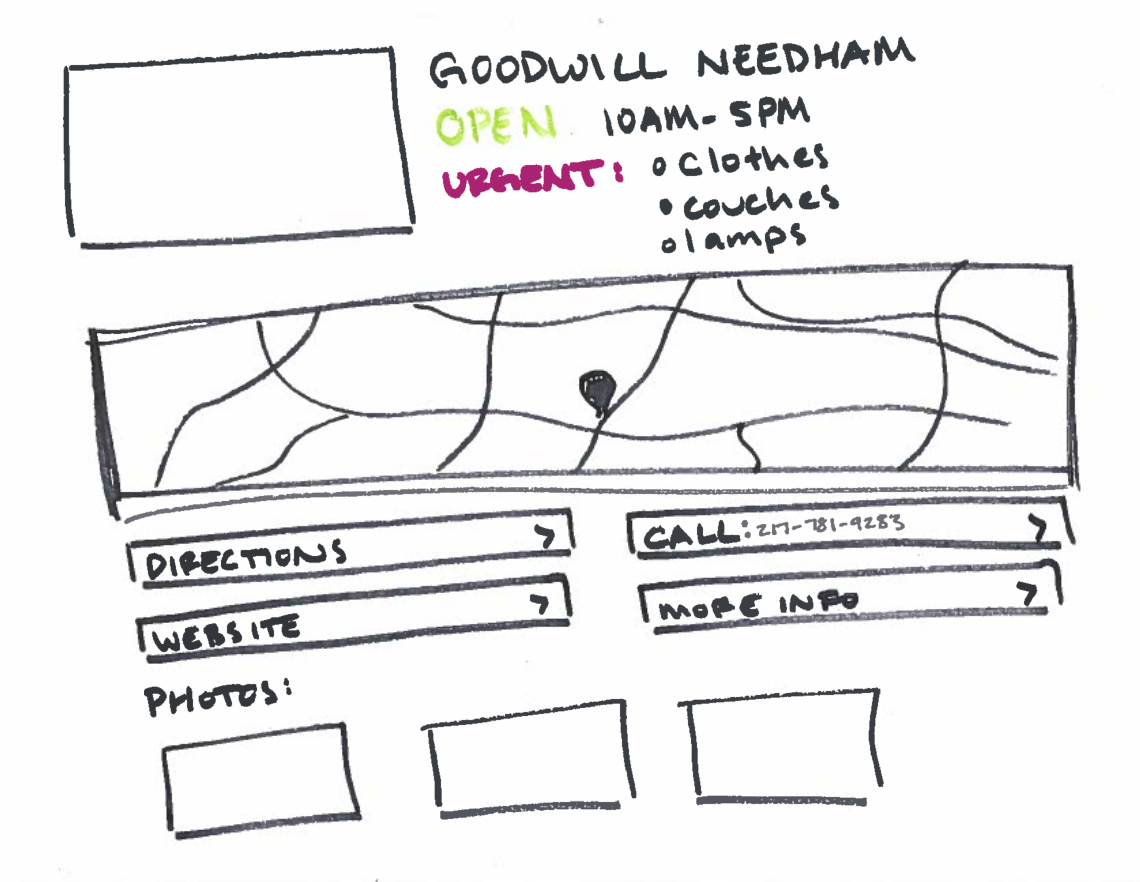 GOODWILL NEEDHAM
OPEN 10AM-5PM
URGENT: Clothes
couches
lamps
DIRECTIONS >
CALL: 217-781-9283 >
WEBSITE >
MORE INFO >
PHOTOS: